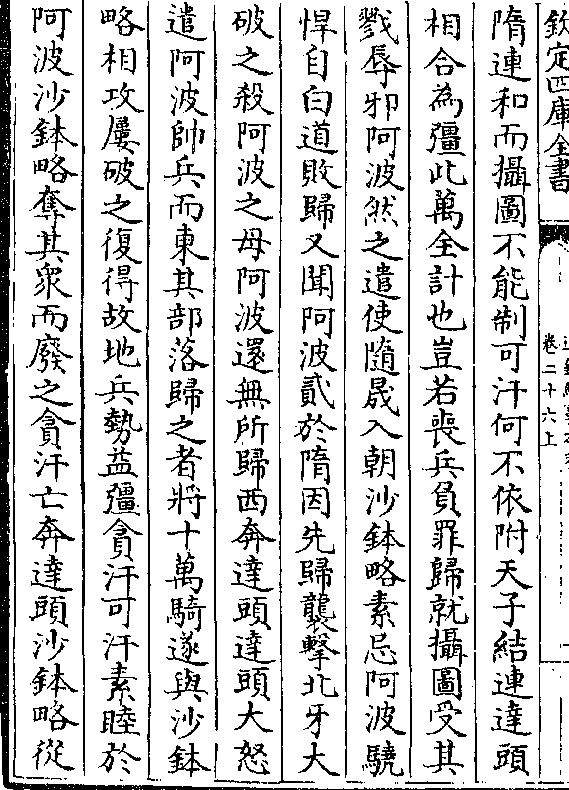 欽定四庫全書
卷二十六上
隋連和而攝圖不能制可汗何不依附天子結連達頭
相合為彊此萬全計也豈若喪兵負罪歸就攝圖受其
戮辱邪阿波然之遣使隨晟入朝沙鉢略素忌阿波驍
悍自白道敗歸又聞阿波貳於隋因先歸襲擊北牙大
破之殺阿波之母阿波還無所歸西奔達頭達頭大怒
遣阿波帥兵而東其部落歸之者將十萬騎遂與沙鉢
略相攻屢破之復得故地兵勢益彊貪汗可汗素睦於
阿波沙鉢略奪其衆而廢之貪汗亡奔達頭沙鉢略從